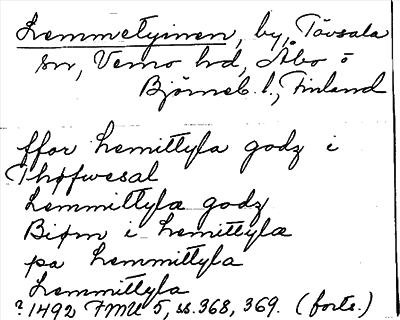 Lemmetyinen, by, Tövsala
sn, Vemo hd, Åbo o
Björneb. l., Finland
ffor Lemittyla godz i
Thøffwesal
Lemmittylæ godz
Biørn i Lemittylæ
pa Lemmittyla
Lemmittyla
? 1492 FMU 5, ss. 368, 369. (forts.)